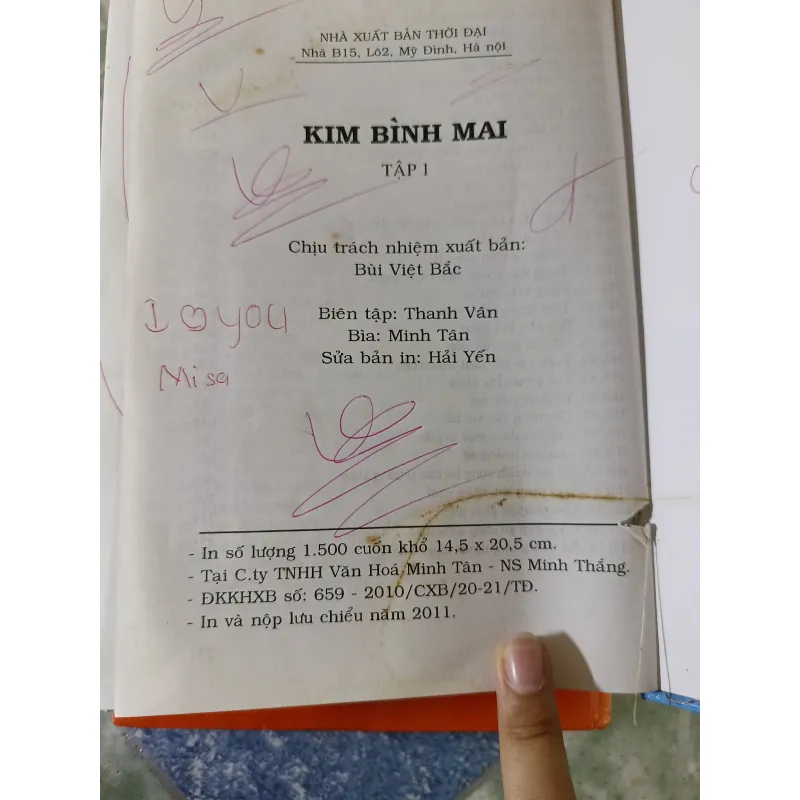 NHÀ XUẤT BẢN THỜI ĐẠI
Nhà B15, Lô2, Mỹ Đình, Hà nội
KIM BÌNH MAI
TẬP 1
Chịu trách nhiệm xuất bản:
Bùi Việt Bắc
I ♡ you
Biên tập: Thanh Vân
Bìa: Minh Tân
Sửa bản in: Hải Yến
Misa
- In số lượng 1.500 cuốn khổ 14,5 x 20,5 cm.
- Tại C.ty TNHH Văn Hoá Minh Tân - NS Minh Thắng.
- ĐKKHXB số: 659 - 2010/CXB/20-21/TĐ.
- In và nộp lưu chiểu năm 2011.